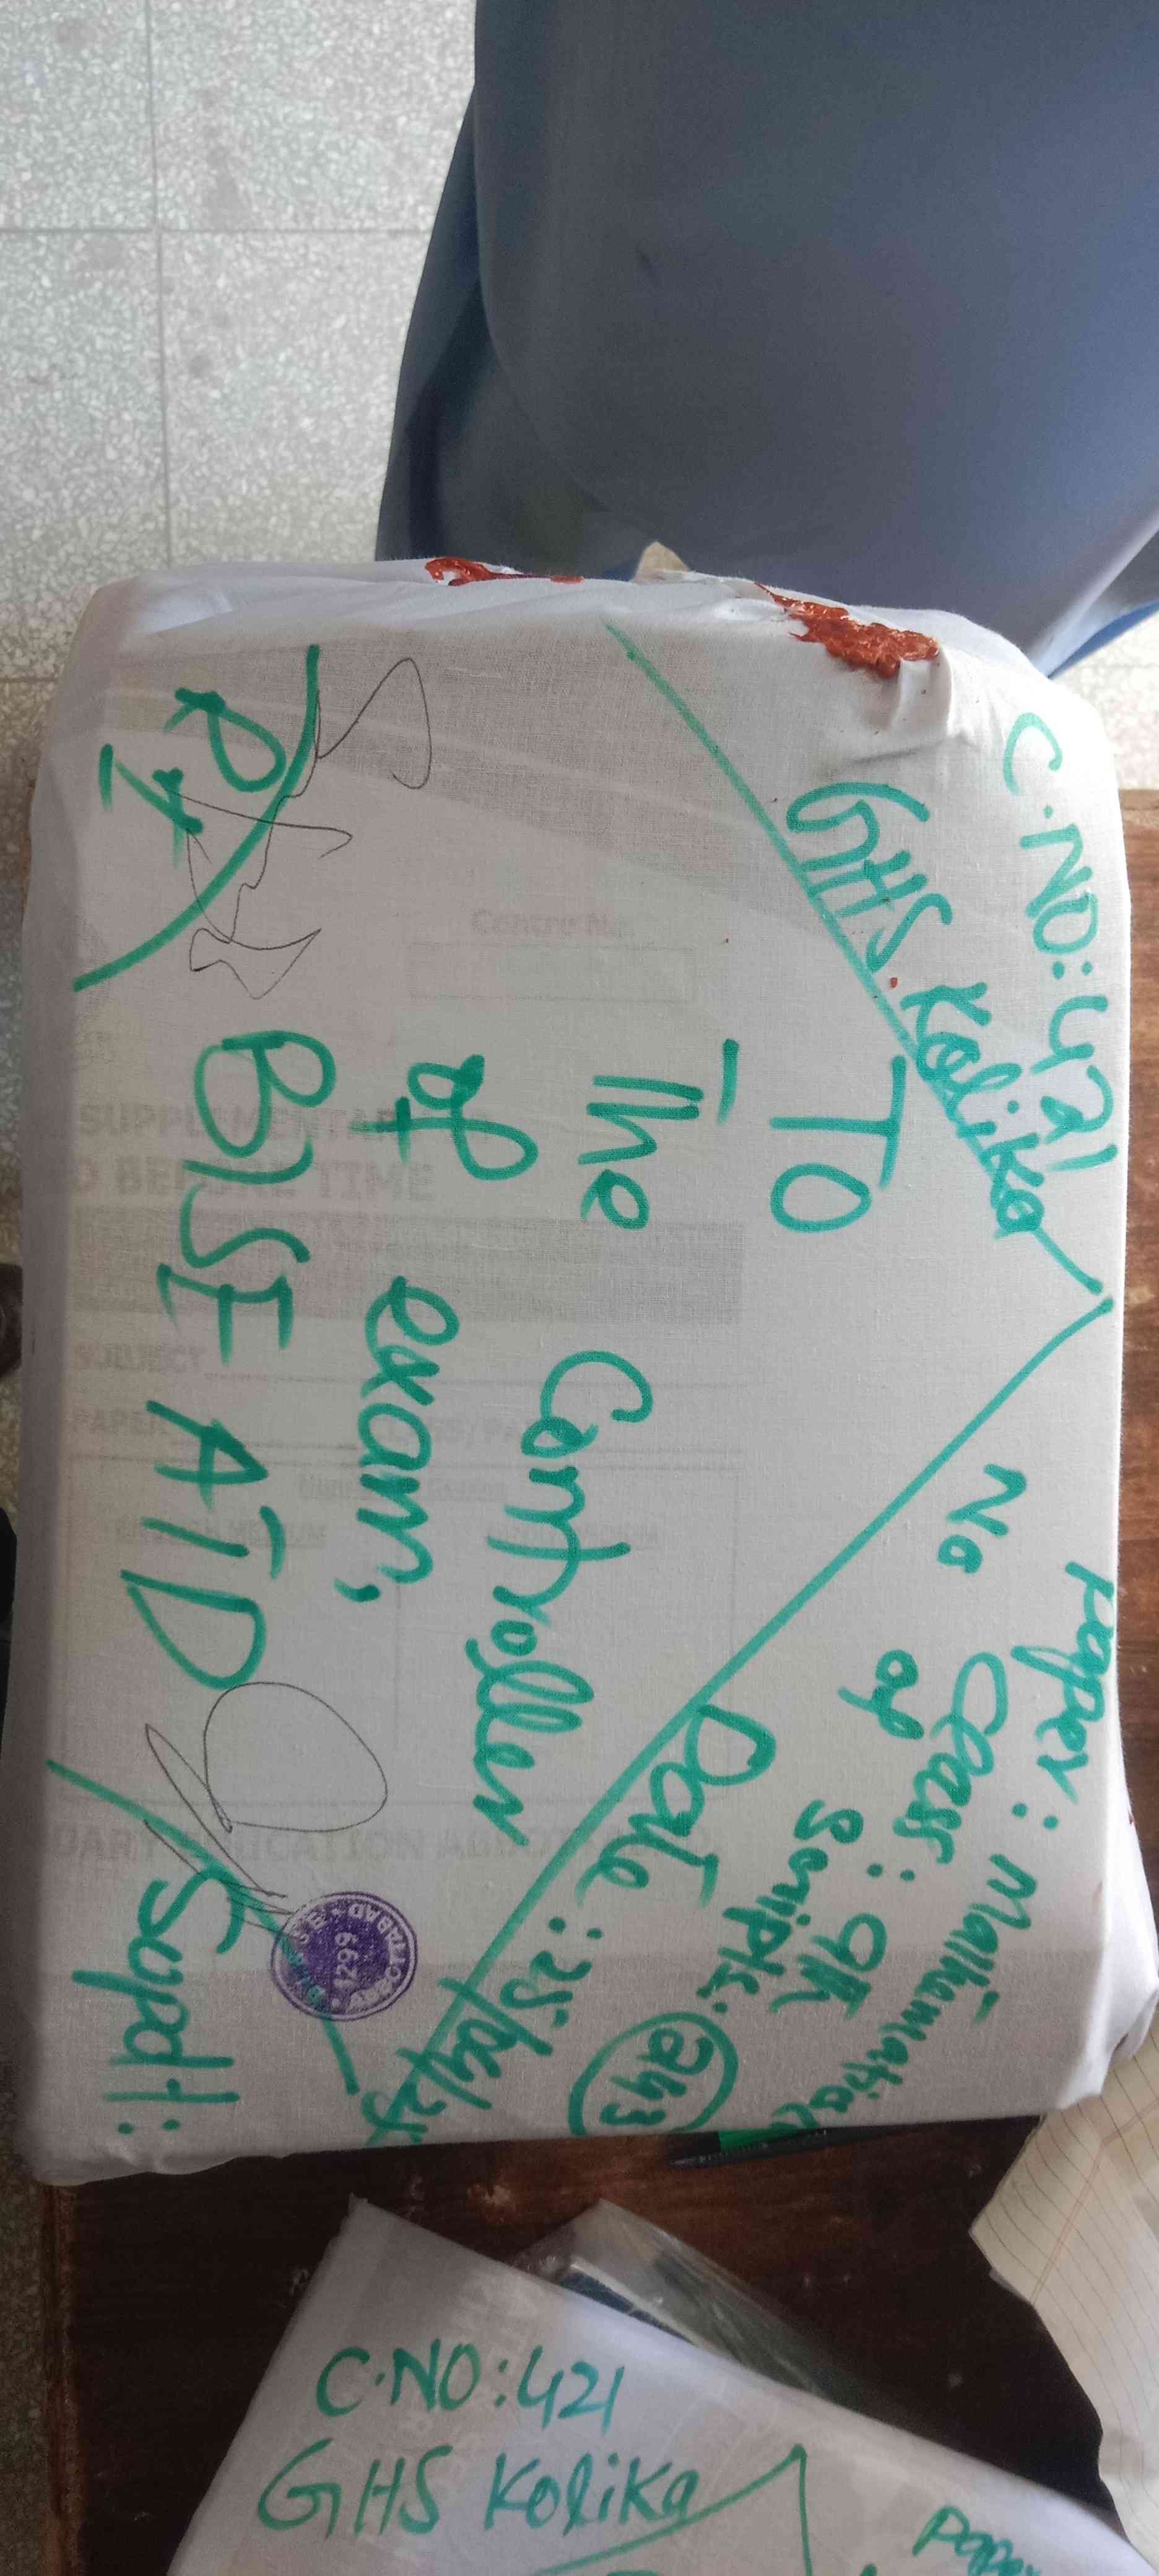 C.NO: 421
GHS Kolika
paper: Mathematics
Class: 9th
No of Scripts: 243
Date: 25/04/25
To
The Controller
of exam,
BISE ATD
RI
Supdt:
1299
Centre No.
SUPPLEMENTARY
BEFORE TIME
SUBJECT
PAPER
C.NO: 421
GHS Kolika
paper